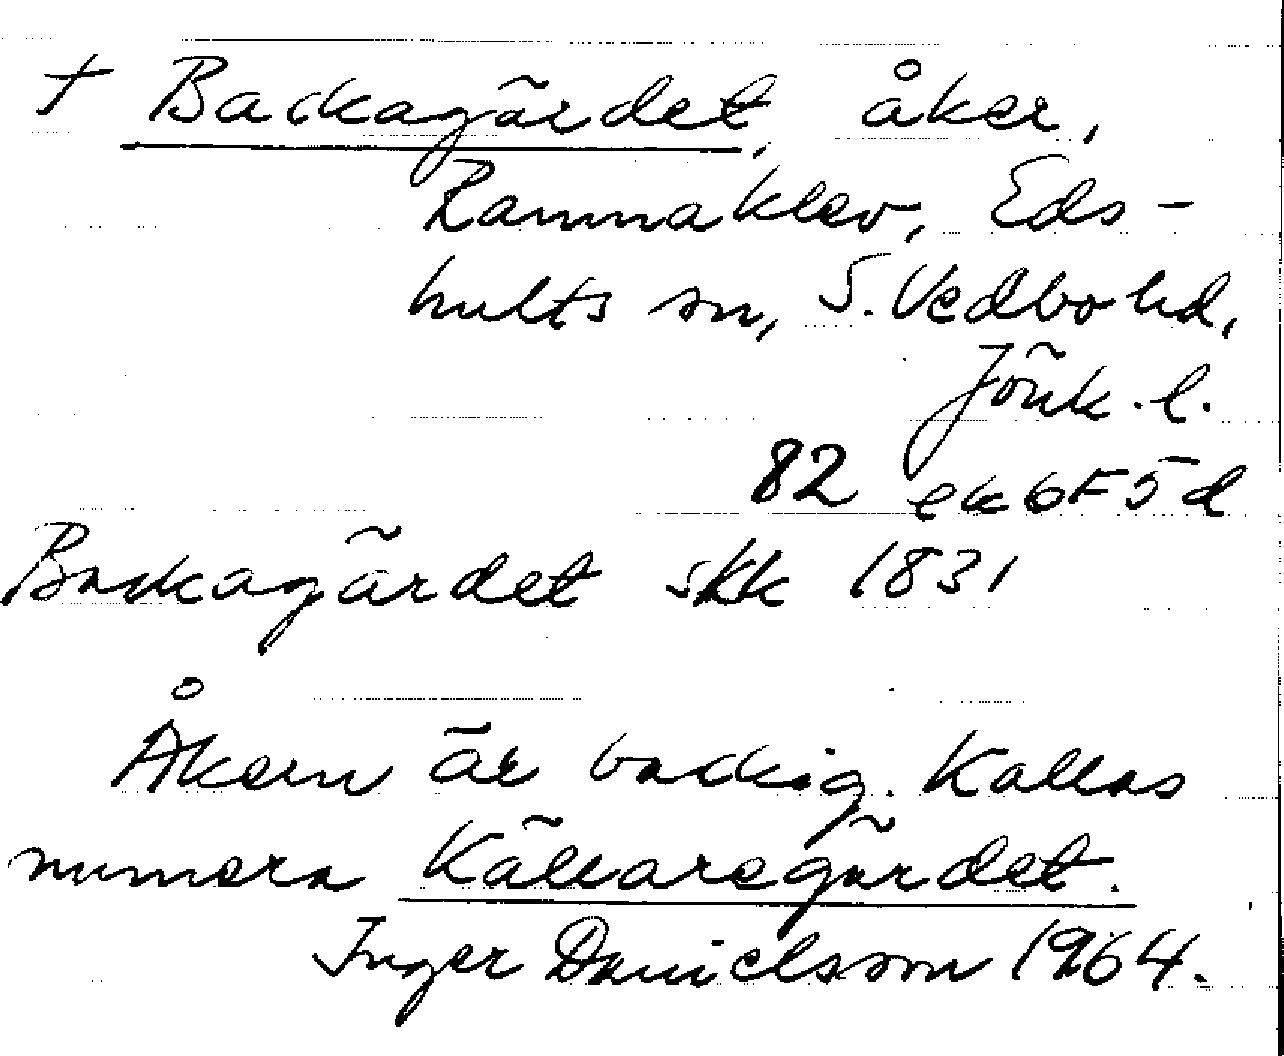 † Backagärdet, åker,
Ramnaklev, Eds-
hults sn, S. Vedbo hd,
Jönk. l.
82 ek 6F5d
Backagärdet skk 1831
Åkern är backig. Kallas
numera Källaregärdet.
Inger Danielsson 1964.